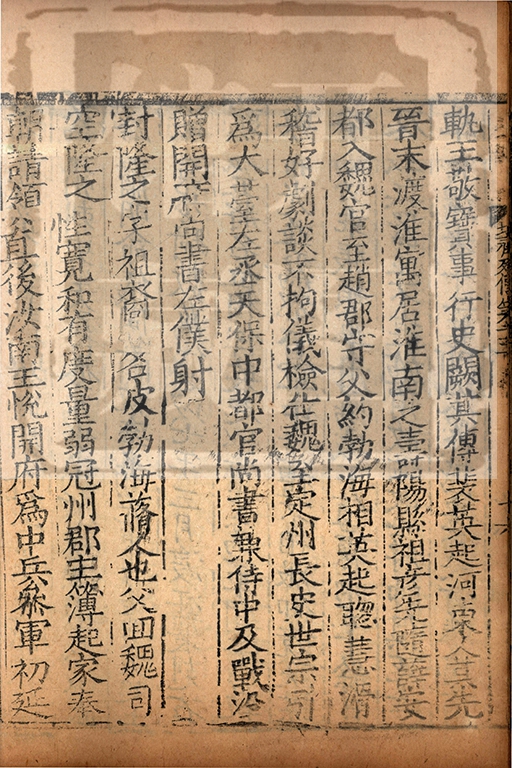 軌王敬寶事行史闕其傳裴英起河東人其先
晉末渡淮寓居淮南之壽陽縣祖彦先隨薛安
都入魏官至趙郡守父約勃海相英起聰慧滑
稽好劇談不拘儀檢仕魏至定州長史世宗引
為大臺左丞天保中都官尚書兼侍中及戰沒
贈開府尚書左僕射
封隆之字祖裔 名皮勃海蓨人也父回魏司
空隆之 性寬和有度量弱冠州郡主簿起家奉
朝請領直後汝南王悅開府為中兵參軍初延